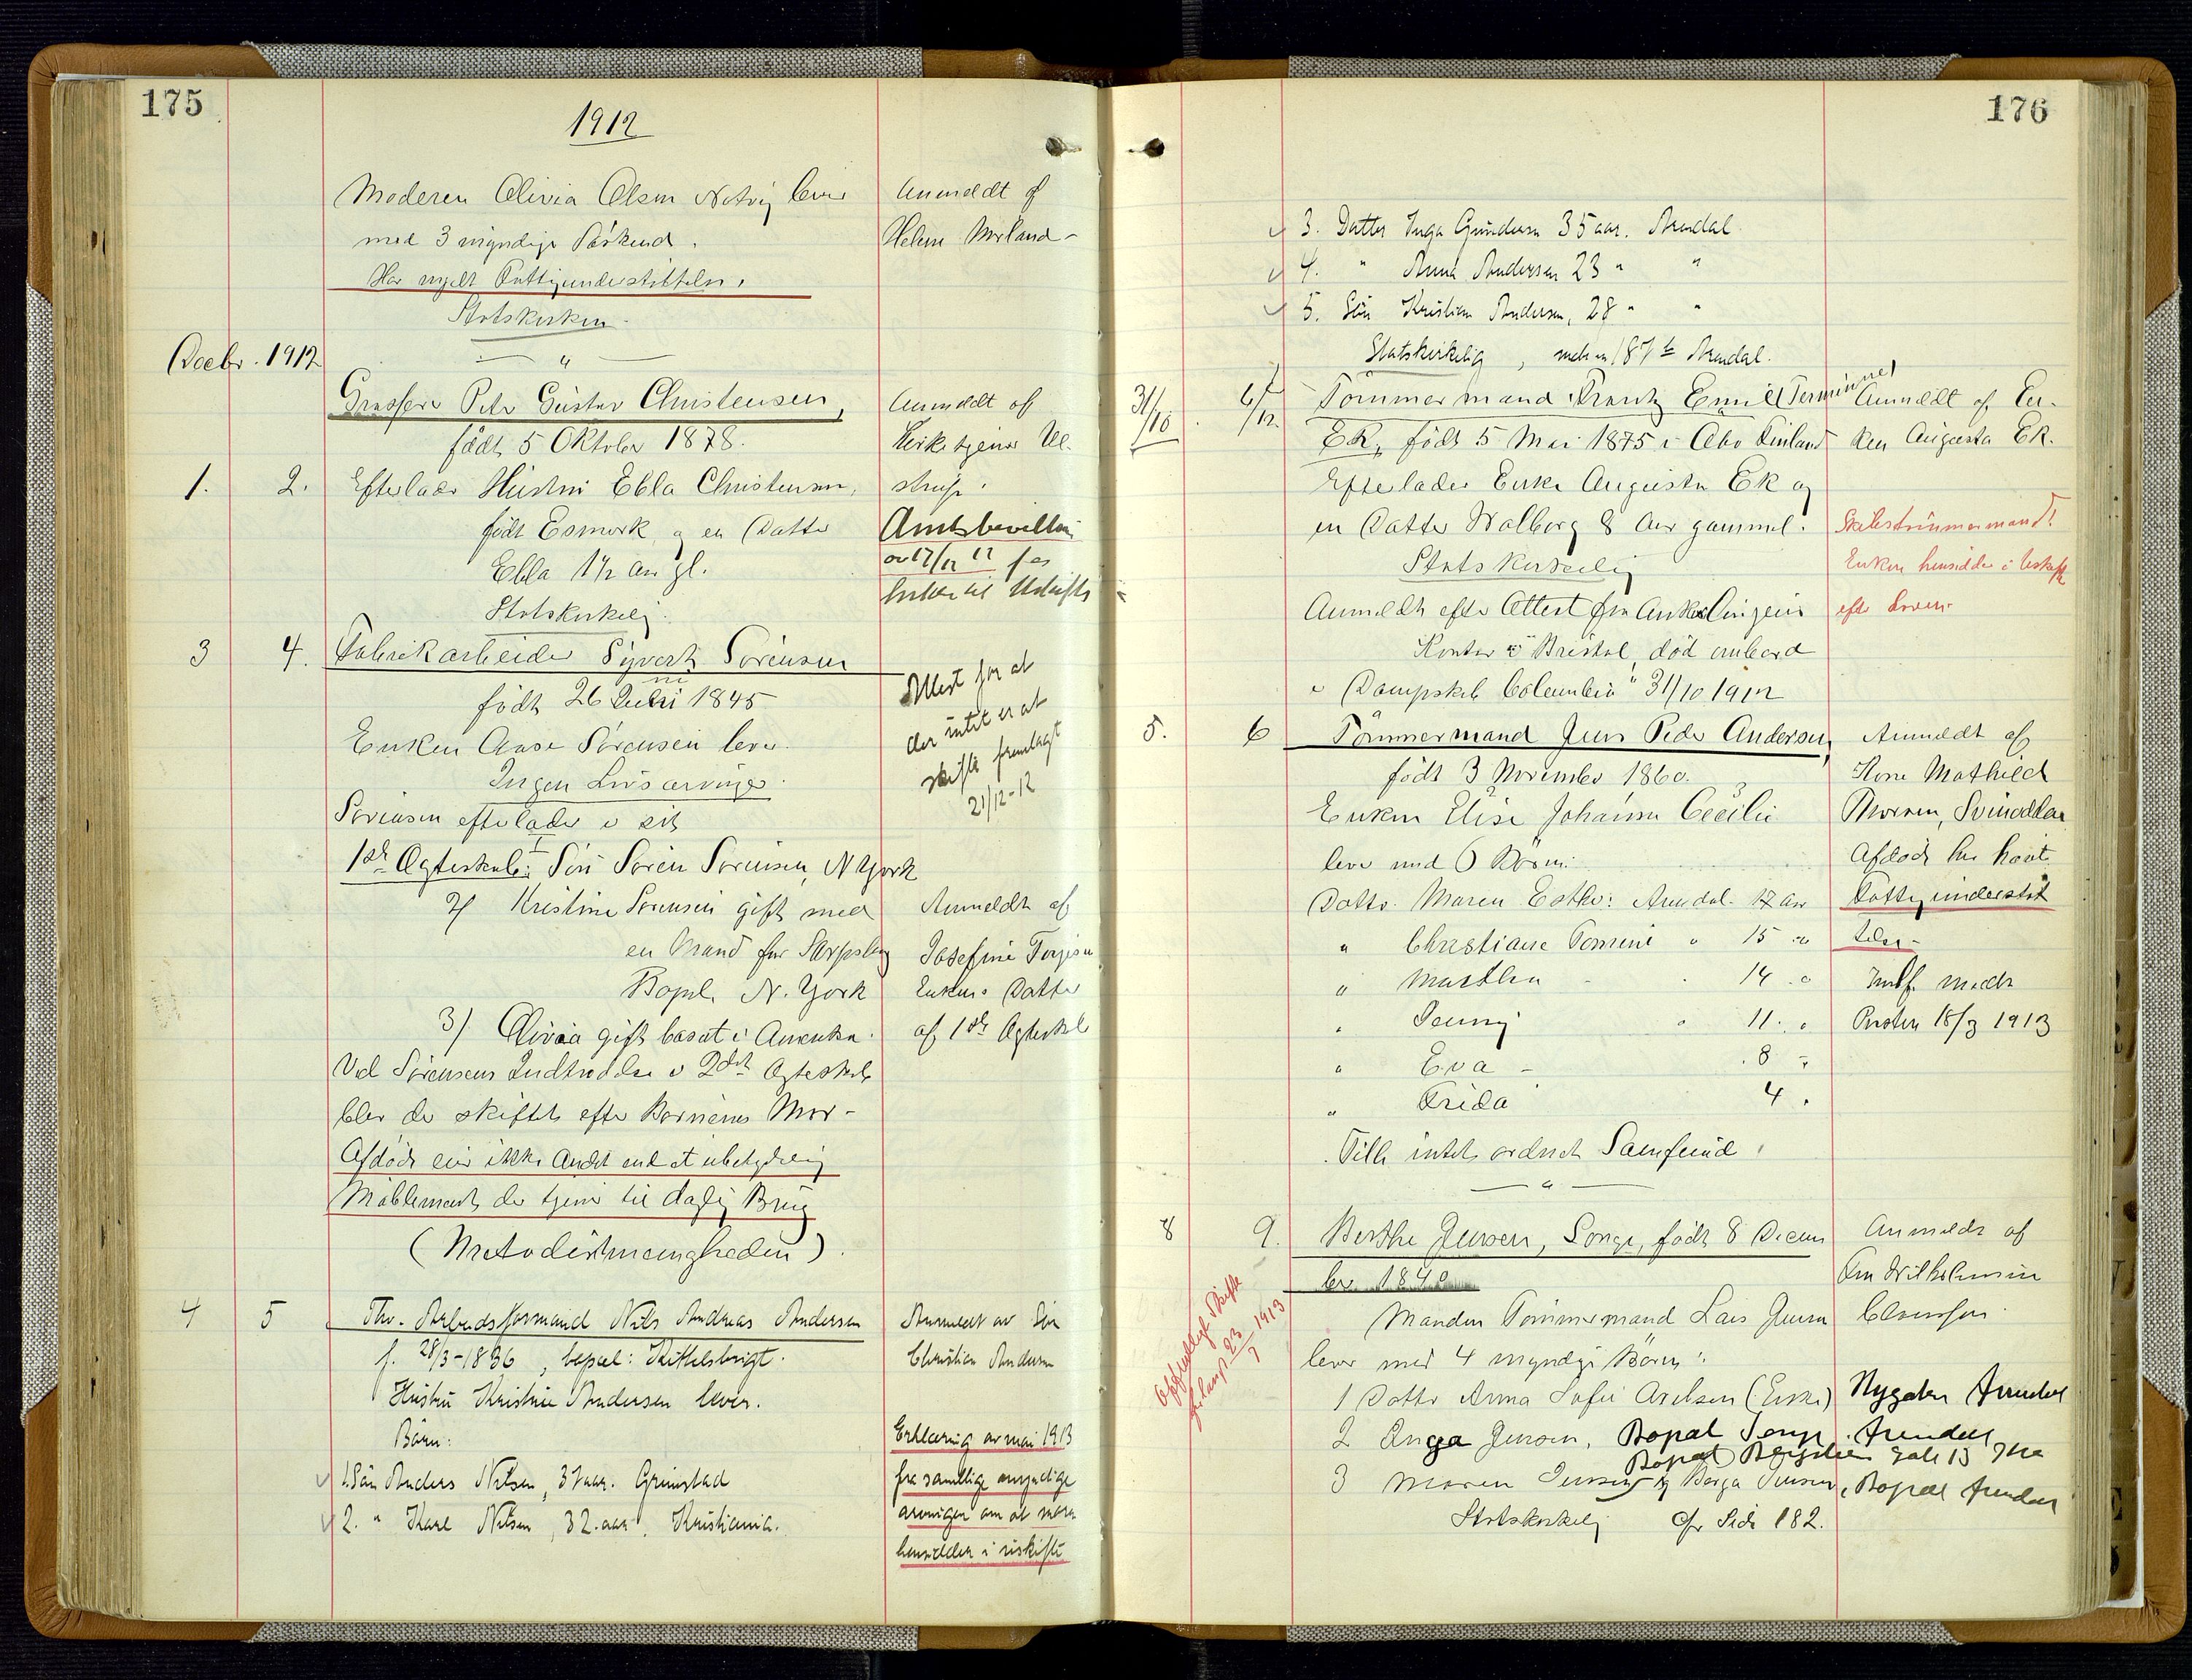 175
1912
Moderen Olivia Olsen Natvig lever
med 3 myndige Barn.
Har nydt Fattigunderstøttelse.
Statskirken
Anmeldt af
Helene Mørland
Decbr. 1912
Grosserer Peter Gustav Christensen,
født 5 Oktober 1878.
1. 2. Efterlader Hustru Ebla Christensen,
født Esmark og en Datter
Ebla 1½ Aar gl.
Statskirkelig.
Anmeldt af
Kirketjener Ul-
strup.
Amtsbevilling
av 17/12 12 for
Enken til Uskifte
3 4. Fabrikarbeider Syvert Sørensen
født 26 Juni 1845
Enken Aase Sørensen lever.
Ingen Livsarvinger.
Sørensen efterlader i sit
1ste Egteskab: Søn Søren Sørensen, N York
2) Kristine Sørensen gift med
en Mand fra Sarpsborg
Bopæl N. York
3) Olivia gift bosat i Amerika.
Ved Sørensens Indtrædelse i 2det Egteskab
blev der skiftet efter Børnenes Mor-
Afdøde eier ikke Andet end et ubetydelig
Møblement der tjener til daglig Brug
(Metodistmenigheden).
Attest for at
der intet er at
skifte fremlagt
21/12-12
Anmeldt af
Josefine Torjesen
Enkens Datter
af 1ste Egteskab
4 5 Fhv. Arbeidsformand Nils Andreas Andersen
f. 28/3-1836, bopæl: Kittelsbrigt.
Hustru Kristine Andersen lever.
Børn:
1. Søn Anders Nilsen, 37 aar. Grimstad
2. " Karl Nilsen, 32. aar, Kristiania.
Anmeldt av Søn
Christian Andersen
Erklæring av mai 1913
fra samtlige myndige
arvinger om at moren
hensidder i uskifte
176
3. Datter Inga Gundersen 35 aar. Arendal
4. " Anna Andersen 23 " "
5. Søn Kristian Andersen, 28 " "
Statskirkelig, Arendal.
31/10 6/12. Tømmermand Frantz Emil
Ek, født 5 Mai 1875 i Abo Finland
Efterlader Enke Augusta Ek og
en Datter Walborg 8 Aar gammel.
Statskirkelig
Anmeldt efter Attest fra
Kontor i Bristol, død ombord
i Dampskib "Columbia" 31/10 1912
Anmeldt af En-
ken Augusta Ek.
Skibstømmermand!
Enken hensidder i Uskifte
efter Loven-
5. 6 Tømmermand Jens Peder Andersen,
født 3 November 1860.
Enken Elise Johanne Cecilie
lever med 6 Børn:
Datter Maren Esther: Arendal 17 Aar
" Christiane Tomine " 15 "
" Mathlea 14 "
" Jenny " 11 "
" Eva - 8 "
" Frida 4 "
Tilh. intet ordnet Samfund.
Anmeldt af
Kone Mathild
Thorsen, Svinodden
Afdøde har havt
Fattigunderstøt
telse-
Posten 18/3 1913
8 9. Berthe Jensen, Songe, født 8 Decem
ber 1840
Manden Tømmermand Lars Jensen
lever med 4 myndige Børn:
1 Datter Anna Sofie Axelsen (Enke) Nygaten Arendal
2 Inga Jensen, Bopæl Songe. Arendal
3 Maren Jensen og Borga Jensen, Bopæl Arendal
Statskirkelig Cfr Side 182.
Anmeldt af
Fru Wilhelmine
Offentligt Skifte
forlangt 23/7 1913